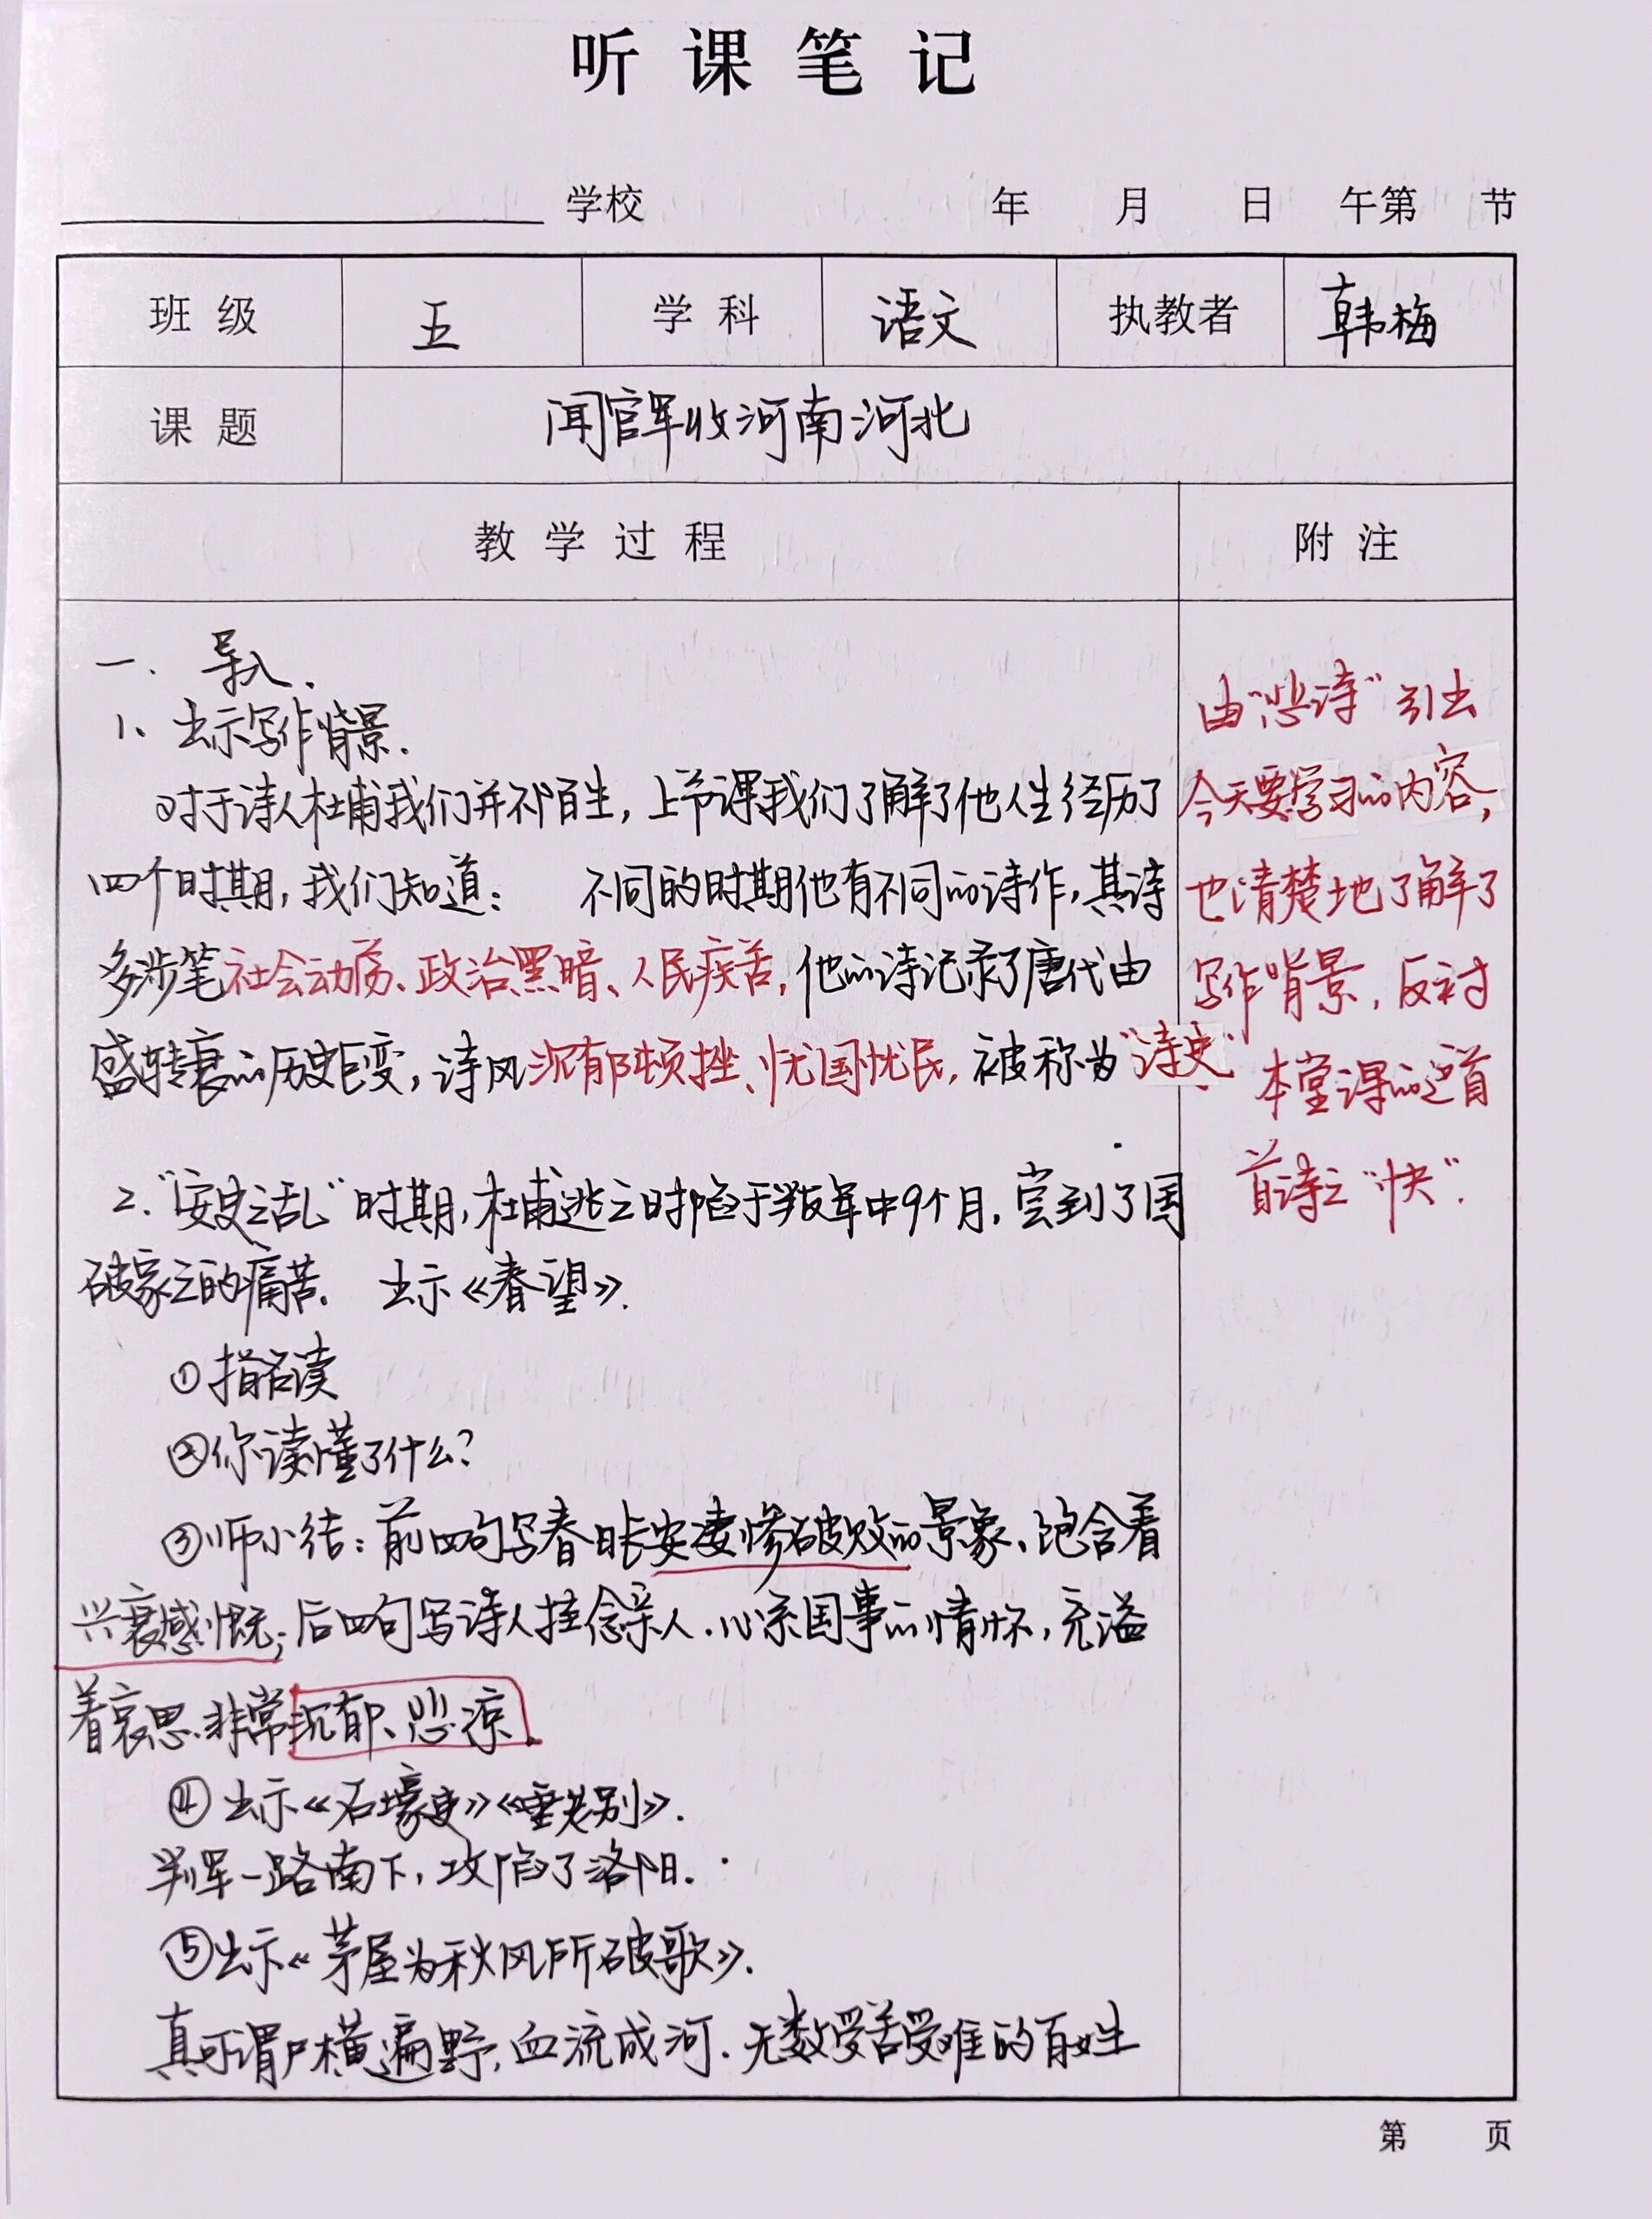 听课笔记
学校 年 月 日 午第 节
班级 五 学科 语文 执教者 韩梅
课题 闻官军收河南河北
教学过程 附注
一、导入.
1、出示写作背景.
对于诗人杜甫我们并不陌生,上节课我们了解了他人生经历了
四个时期,我们知道: 不同的时期他有不同的诗作,其诗
多涉笔社会动荡、政治黑暗、人民疾苦,他的诗记录了唐代由
盛转衰的历史巨变,诗风沉郁顿挫、忧国忧民,被称为“诗史”.
2.“安史之乱”时期,杜甫逃亡时陷于叛军中9个月,尝到了国
破家亡的痛苦. 出示《春望》.
①指名读
②你读懂了什么?
③师小结:前四句写春日长安凄惨破败的景象、饱含着
兴衰感慨;后四句写诗人挂念亲人、心系国事的情怀,充溢
着哀思.非常沉郁、悲凉.
④出示《石壕吏》《垂老别》.
判军一路南下,攻陷了洛阳.
⑤出示《茅屋为秋风所破歌》.
真可谓尸横遍野,血流成河.无数受苦受难的百姓
由“悲诗”引出
今天要学习的内容,
也清楚地了解了
写作背景,反衬
本堂课的这首
首诗之“快”.
第 页